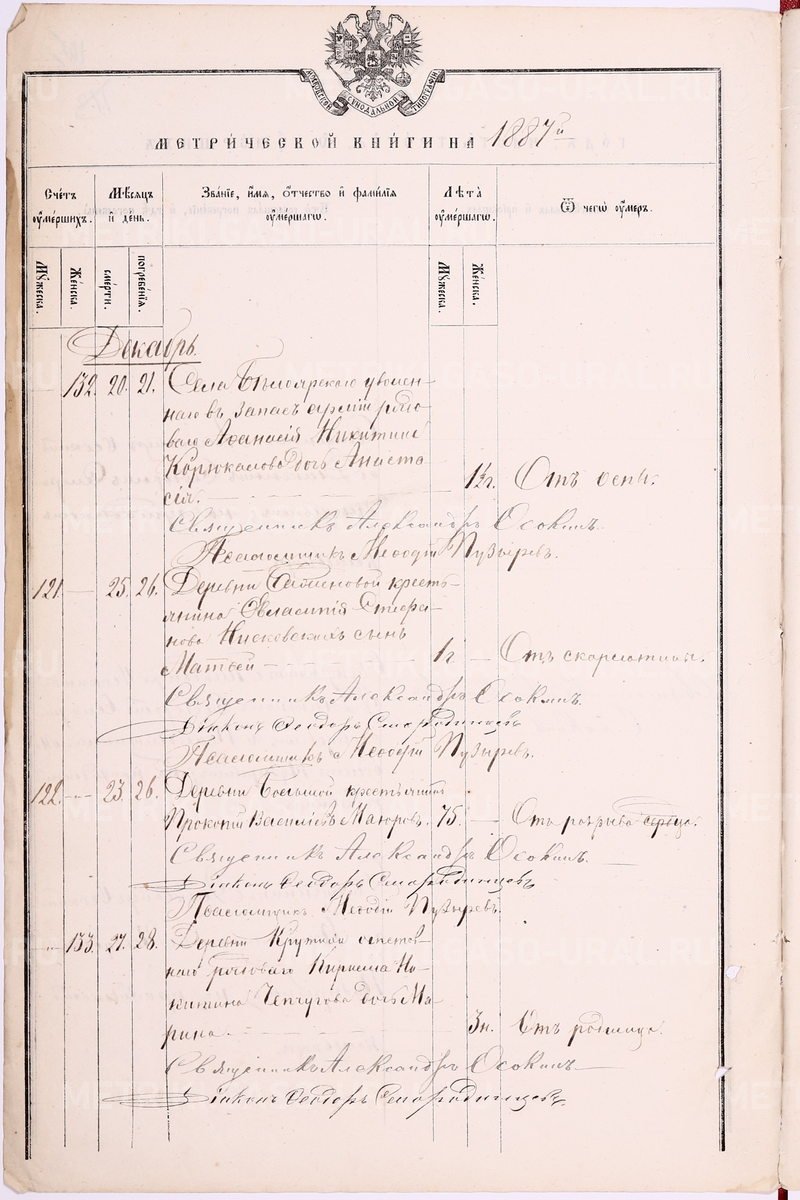 МОСКОВСКОЙ СѴНОДАЛЬНОЙ ТИПОГРАФІИ
МЕТРИ́ЧЕСКОЙ КНИ́ГИ НА 1887 й
Сче́тъ ᲂу҆ме́ршихъ.
Мѣ́сѧцъ и҆ де́нь.
Зва́нїе, и҆́мѧ, ѻ҆́тчество и҆ фами́лїѧ ᲂу҆ме́ршагѡ.
Лѣ́та ᲂу҆ме́ршагѡ.
Ѿ чегѡ̀ ᲂу҆́меръ.
Мꙋ́жеска.
Же́нска.
сме́рти.
погребе́нїѧ.
Мꙋ́жеска.
Же́нска.
Декабрь.
132. 20. 21. Села Бѣлоярскаго уволен-
наго въ запасъ арміи рядо-
ваго Аѳанасія Никитина
Корюкалова дочь Анаста
сія. 1½ г. Отъ оспы.
Священникъ Александръ Осокинъ.
Псаломщикъ Меѳодій Пузыревъ.
121. 25. 26. Деревни крестья-
янина Евлампія Стефа-
нова сынъ
Матвей 1 г. Отъ скарлатины.
Священникъ Александръ Осокинъ.
Діаконъ Ѳеодоръ Смородинцевъ
Псаломщикъ Меѳодій Пузыревъ.
122. 23. 26. Деревни Большой крестьянинъ
Прокопій Васильевъ Маюровъ. 75. Отъ разрыва сердца.
Священникъ Александръ Осокинъ.
Діаконъ Ѳеодоръ Смородинцевъ
Псаломщикъ Меѳодій Пузыревъ.
133. 27. 28. Деревни отстав-
наго рядоваго Кирилла Ни-
китина Чепчугова дочь Ма-
рина. 3 н. Отъ родимца.
Священникъ Александръ Осокинъ
Діаконъ Ѳеодоръ Смородинцевъ.